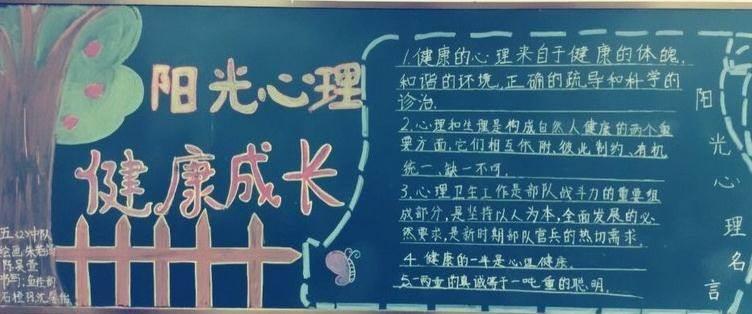 阳光心理
健康成长
五(2)中队
1.健康的心理来自于健康的体魄,
和谐的环境,正确的疏导和科学的
诊治.
2.心理和生理是构成自然人健康的两个重
要方面,它们相互依附、彼此制约、有机
统一、缺一不可.
3.心理卫生工作是部队战斗力的重要组
成部分,是坚持以人为本,全面发展的必
然要求,是新时期部队官兵的热切需求.
4.健康的一半是心理健康.
5.一两重的真诚等于一吨重的聪明.
阳光心理名言